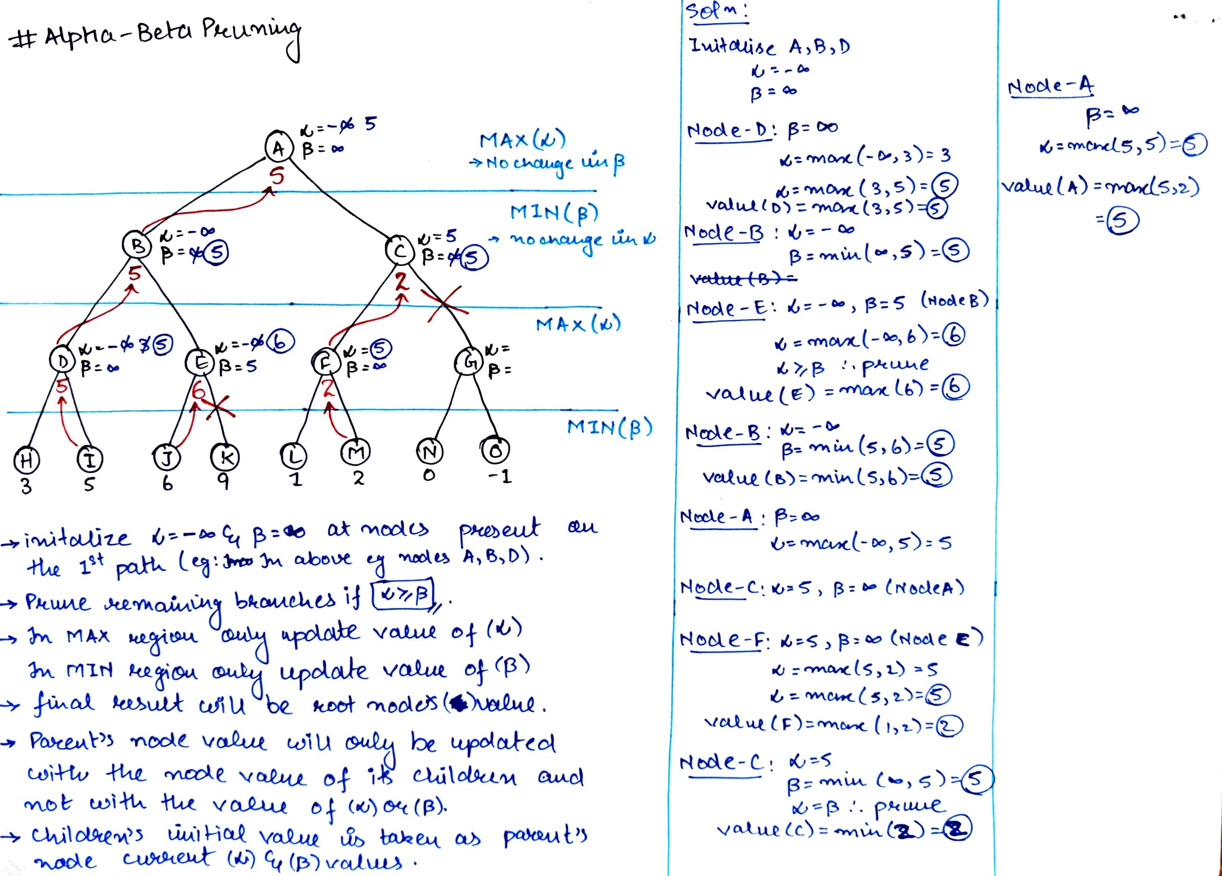 # Alpha-Beta Pruning
α=-∞ 5
A β=∞
5
MAX(α)
→No change in β
MIN(β)
→ no change in α
B α=-∞
β=∞ 5
5
C α=5
β=∞ 5
2
MAX(α)
D α=-∞ 3 5
β=∞
5
E α=-∞ 6
β=5
6
F α=5
β=∞
2
G α=
β=
MIN(β)
H I J K L M N O
3 5 6 9 1 2 0 -1
→initalize α=-∞ & β=∞ at nodes present on
the 1st path (eg: In above eg nodes A,B,D).
→ Prune remaining branches if α≥β.
→ In MAX region only update value of (α)
In MIN region only update value of (β)
→ final result will be root node's value.
→ Parent's node value will only be updated
with the node value of its children and
not with the value of (α) or (β).
→ Children's initial value is taken as parent's
node current (α) & (β) values.
Soln:
Initalise A,B,D
α=-∞
β=∞
Node-D: β=∞
α=max(-∞,3)=3
α=max(3,5)=5
value(D)=max(3,5)=5
Node-B: α=-∞
β=min(∞,5)=5
value(B)=
Node-E: α=-∞, β=5 (Node B)
α=max(-∞,6)=6
α≥β ∴ prune
value(E)=max(6)=6
Node-B: α=-∞
β=min(5,6)=5
value(B)=min(5,6)=5
Node-A: β=∞
α=max(-∞,5)=5
Node-C: α=5, β=∞ (Node A)
Node-F: α=5, β=∞ (Node E)
α=max(5,2)=5
α=max(5,2)=5
value(F)=max(1,2)=2
Node-C: α=5
β=min(∞,5)=5
α=β ∴ prune
value(C)=min(2)=2
Node-A
β=∞
α=max(5,5)=5
value(A)=max(5,2)
=5